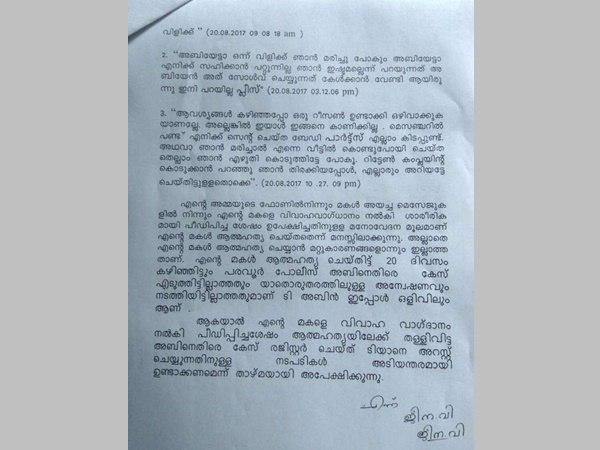 വിളിക്ക് " (20.08.2017 09 08 18 am )
2. "അബിയേട്ടാ ഒന്ന് വിളിക്ക് ഞാൻ മരിച്ചു പോകും അബിയേട്ടാ
എനിക്ക് സഹിക്കാൻ പറ്റുന്നില്ല ഞാൻ ഇഷ്ടമല്ലെന്ന് പറയുന്നത് അ
ബിയേൻ അത് സോൾവ് ചെയ്യുന്നത് കേൾക്കാൻ വേണ്ടി ആയിരു
ന്നു ഇനി പറയില്ല പ്ലീസ്" (20.08.2017 03.12.06 pm)
3. "ആവശ്യങ്ങൾ കഴിഞ്ഞപ്പോ ഒരു റീസൺ ഉണ്ടാക്കി ഒഴിവാക്കുക
യാണല്ലേ. അല്ലെങ്കിൽ ഇയാൾ ഇങ്ങനെ കാണിക്കില്ല . മെസഞ്ചറിൽ
പണ്ട" എനിക്ക് സെന്റ് ചെയ്ത ബേഡി പാർട്ട്സ് എല്ലാം കിടപ്പുണ്ട്.
അഥവാ ഞാൻ മരിച്ചാൽ എന്നെ വീട്ടിൽ കൊണ്ടുപോയി ചെയ്ത
തെല്ലാം ഞാൻ എഴുതി കൊടുത്തിട്ടേ പോകൂ. റിട്ടേൺ കംപ്ലയിന്റ്
കൊടുക്കാൻ പറഞ്ഞു ഞാൻ തിരക്കിയപ്പോൾ, എല്ലാരും അറിയട്ടേ
ചെയ്തിട്ടുള്ളതൊക്കെ". (20.08.2017 10 .27. 09 pm)
എന്റെ അമ്മയുടെ ഫോണിൽനിന്നും മകൾ അയച്ച മെസേജുക
ളിൽ നിന്നും എന്റെ മകളെ വിവാഹവാഗ്ധാനം നൽകി ശാരീരിക
മായി പീഡിപിച്ച ശേഷം ഉപേക്ഷിച്ചതിനുളള മനോവേദന മൂലമാണ്
എന്റെ മകൾ ആത്മഹത്യ ചെയ്തതെന്ന് മനസ്സിലാക്കുന്നു. അല്ലാതെ
എന്റെ മകൾ ആത്മഹത്യ ചെയ്യാൻ മറ്റുകാരണങ്ങളൊന്നും ഇല്ലാത്ത
താണ്. എന്റെ മകൾ ആത്മഹത്യ ചെയ്തിട്ട് 20 ദിവസം
കഴിഞ്ഞിട്ടും പരവൂർ പോലീസ് അബിനെതിരെ കേസ്
എടുത്തിട്ടില്ലാത്തതും യാതൊരുതരത്തിലുള്ള അന്വേഷണവും
നടത്തിയിട്ടില്ലാത്തതുമാണ് ടി അബിൻ ഇപ്പോൾ ഒളിവിലും
ആണ്
ആകയാൽ എന്റെ മകളെ വിവാഹ വാഗ്ദാനം
നൽകി പീഡിപ്പിച്ചശേഷം ആത്മഹത്യയിലേക്ക് തള്ളിവിട്ട
അബിനെതിരെ കേസ് രജിസ്റ്റർ ചെയ്ത് ടിയാനെ അറസ്റ്റ്
ചെയ്യുന്നതിനുള്ള നടപടികൾ അടിയന്തരമായി
ഉണ്ടാക്കണമെന്ന് താഴ്മയായി അപേക്ഷിക്കുന്നു.
എന്ന്
ജീന.വി
ജീന.വി